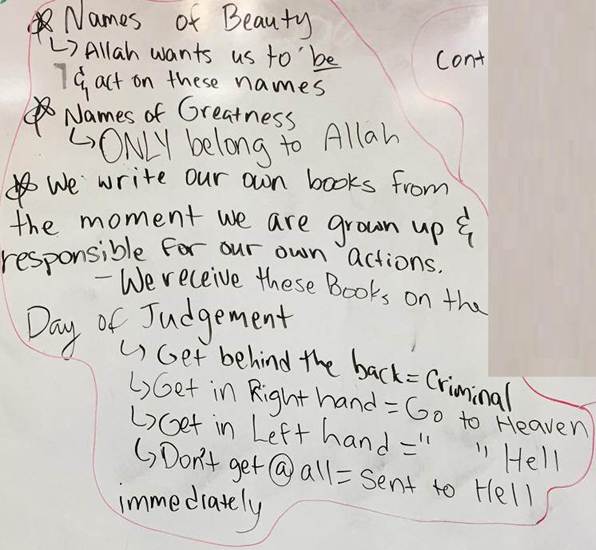 ☆ Names of Beauty
↳ Allah wants us to be
& act on these names
Cont
☆ Names of Greatness
↳ ONLY belong to Allah
☆ We write our own books from
the moment we are grown up &
responsible for our own actions.
- We receive these Books on the
Day of Judgement
↳ Get behind the back = Criminal
↳ Get in Right hand = Go to Heaven
↳ Get in Left hand = " " Hell
↳ Don't get @ all = Sent to Hell
immediately